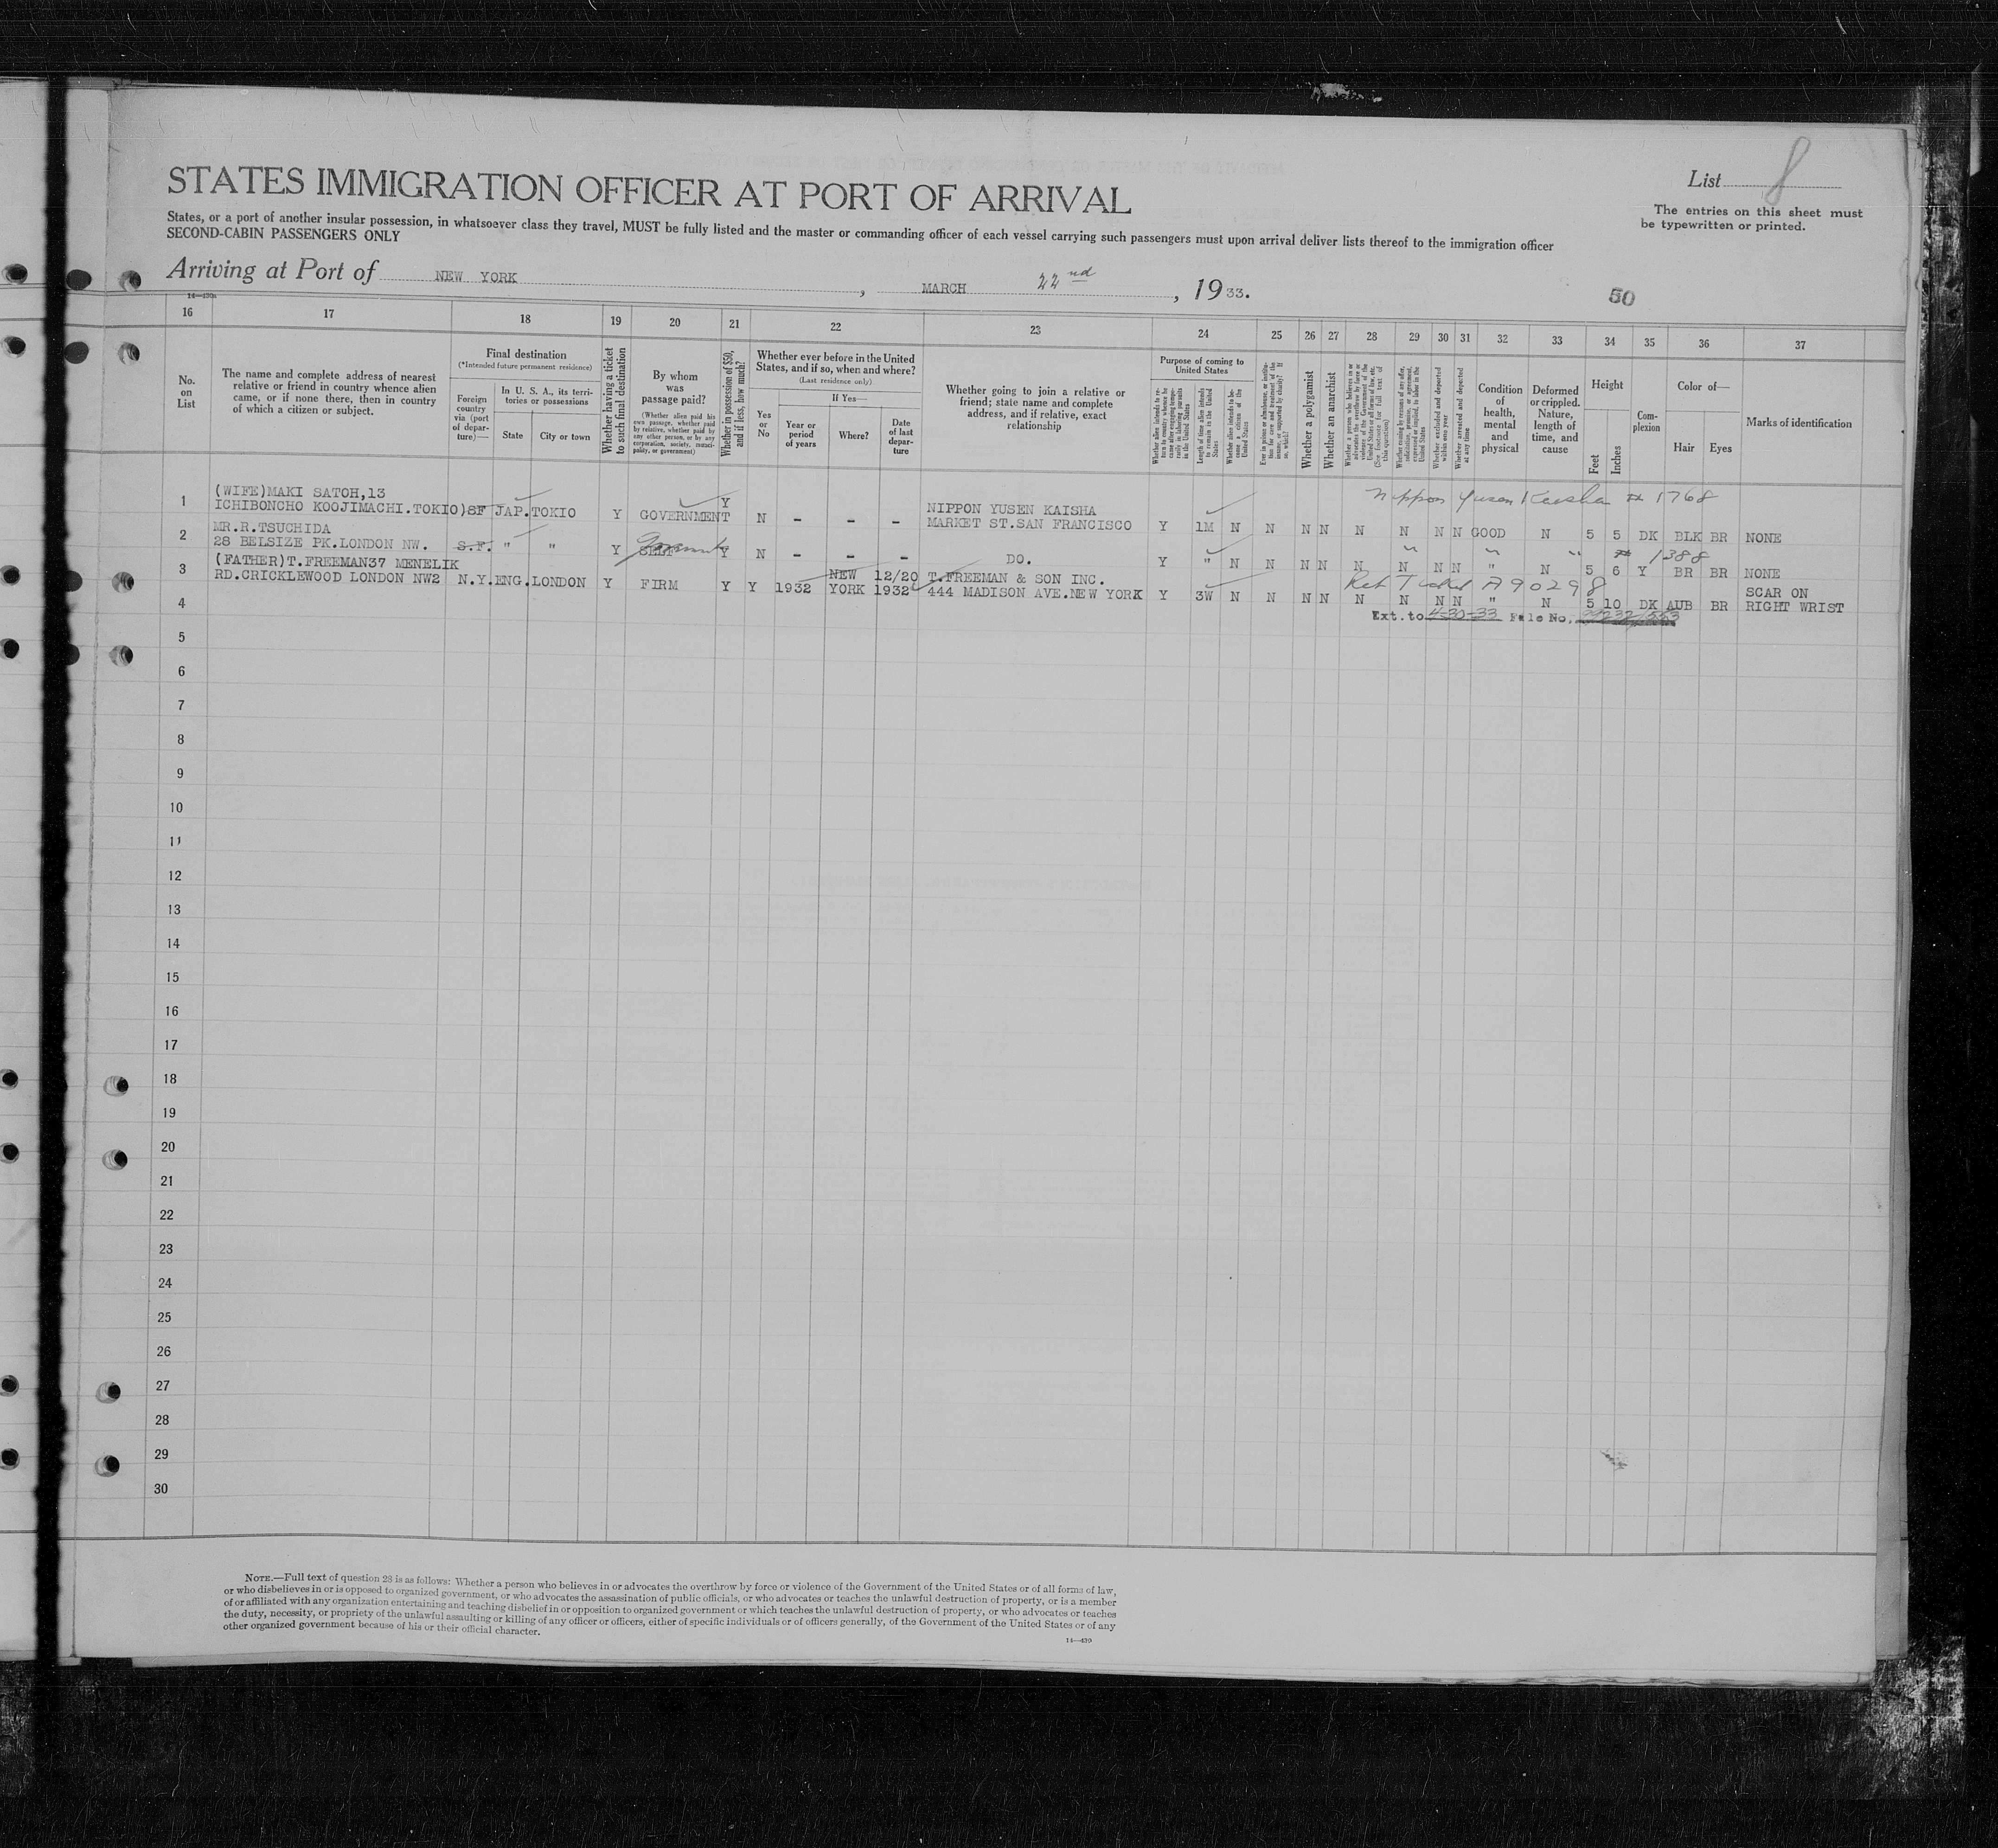 STATES IMMIGRATION OFFICER AT PORT OF ARRIVAL
List 8
The entries on this sheet must
be typewritten or printed.
States, or a port of another insular possession, in whatsoever class they travel, MUST be fully listed and the master or commanding officer of each vessel carrying such passengers must upon arrival deliver lists thereof to the immigration officer
SECOND-CABIN PASSENGERS ONLY
Arriving at Port of NEW YORK, MARCH 22nd, 1933.
50
14—430a
16 17 18 19 20 21 22 23 24 25 26 27 28 29 30 31 32 33 34 35 36 37
No.
on
List
The name and complete address of nearest
relative or friend in country whence alien
came, or if none there, then in country
of which a citizen or subject.
Final destination
(*Intended future permanent residence)
Foreign
country
via (port
of depar-
ture)—
In U. S. A., its terri-
tories or possessions
State
City or town
Whether having a ticket
to such final destination
By whom
was
passage paid?
(Whether alien paid his
own passage, whether paid
by relative, whether paid by
any other person, or by any
corporation, society, munici-
pality, or government)
Whether in possession of $50,
and if less, how much?
Whether ever before in the United
States, and if so, when and where?
(Last residence only)
Yes
or
No
If Yes—
Year or
period
of years
Where?
Date
of last
depar-
ture
Whether going to join a relative or
friend; state name and complete
address, and if relative, exact
relationship
Purpose of coming to
United States
Whether alien intends to re-
turn to country whence he
came after engaging tempo-
rarily in laboring pursuits
in the United States
Length of time alien intends
to remain in the United
States
Whether alien intends to be-
come a citizen of the
United States
Ever in prison or almshouse, or institu-
tion for care and treatment of the
insane, or supported by charity? If
so, which?
Whether a polygamist
Whether an anarchist
Whether a person who believes in or
advocates the overthrow by force or
violence of the Government of the
United States or all forms of law, etc.
(See footnote for full text of
this question)
Whether coming by reason of any offer,
solicitation, promise, or agreement,
expressed or implied, to labor in the
United States
Whether excluded and deported
within one year
Whether arrested and deported
at any time
Condition
of
health,
mental
and
physical
Deformed
or crippled.
Nature,
length of
time, and
cause
Height
Feet
Inches
Com-
plexion
Color of—
Hair
Eyes
Marks of identification
(WIFE)MAKI SATOH,13 NIPPON YUSEN KAISHA Nippon Yusen Kaisha # 1768
1 ICHIBONCHO KOOJIMACHI.TOKIO)SF JAP.TOKIO Y GOVERNMENT Y N - - - MARKET ST.SAN FRANCISCO Y 1M N N N N N N N N GOOD N 5 5 DK BLK BR NONE
MR.R.TSUCHIDA " " " # 1388
2 28 BELSIZE PK.LONDON NW. S.F. " " Y Government Y N - - - DO. Y " N N N N N N N N " N 5 6 Y BR BR NONE
(FATHER)T.FREEMAN37 MENELIK NEW 12/20 T.FREEMAN & SON INC. A90298 SCAR ON
3 RD.CRICKLEWOOD LONDON NW2 N.Y.ENG.LONDON Y FIRM Y Y 1932 YORK 1932 444 MADISON AVE.NEW YORK Y 3W N N N N N N N N " N 5 10 DK AUB BR RIGHT WRIST
4 Ext.to 4-30-33 File No.
5
6
7
8
9
10
11
12
13
14
15
16
17
18
19
20
21
22
23
24
25
26
27
28
29
30
NOTE.—Full text of question 28 is as follows: Whether a person who believes in or advocates the overthrow by force or violence of the Government of the United States or of all forms of law,
or who disbelieves in or is opposed to organized government, or who advocates the assassination of public officials, or who advocates or teaches the unlawful destruction of property, or is a member
of or affiliated with any organization entertaining and teaching disbelief in or opposition to organized government or which teaches the unlawful destruction of property, or who advocates or teaches
the duty, necessity, or propriety of the unlawful assaulting or killing of any officer or officers, either of specific individuals or of officers generally, of the Government of the United States or of any
other organized government because of his or their official character.
14—430